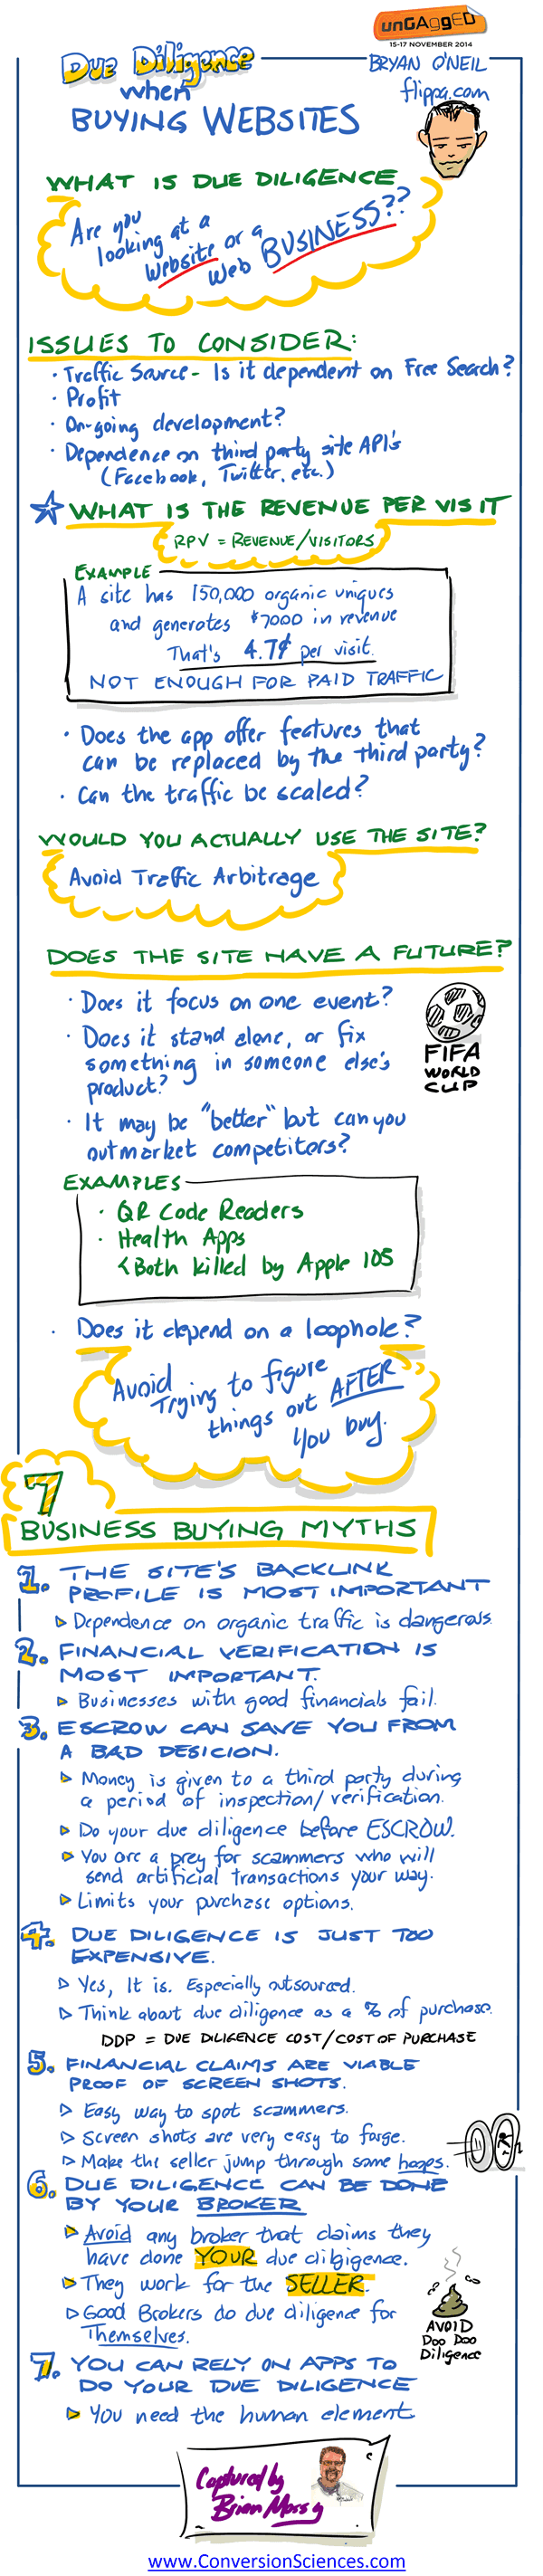 unGAggED
15-17 NOVEMBER 2014
Due Diligence
when
BUYING WEBSITES
BRYAN O'NEIL
flippa.com
WHAT IS DUE DILIGENCE
Are you
looking at a
website or a
web BUSINESS??
ISSUES TO CONSIDER:
· Traffic Source - Is it dependent on Free Search?
· Profit
· On-going development?
· Dependence on third party site API's
(Facebook, Twitter, etc.)
WHAT IS THE REVENUE PER VISIT
RPV = REVENUE/VISITORS
EXAMPLE
A site has 150,000 organic uniques
and generates $7000 in revenue
That's 4.7¢ per visit.
NOT ENOUGH FOR PAID TRAFFIC
· Does the app offer features that
can be replaced by the third party?
· Can the traffic be scaled?
WOULD YOU ACTUALLY USE THE SITE?
Avoid Traffic Arbitrage
DOES THE SITE HAVE A FUTURE?
· Does it focus on one event?
· Does it stand alone, or fix
something in someone else's
product?
FIFA
WORLD
CUP
· It may be "better" but can you
outmarket competitors?
EXAMPLES
· QR Code Readers
· Health Apps
< Both killed by Apple IOS
· Does it depend on a loophole?
Avoid
Trying to figure
things out AFTER
you buy.
7
BUSINESS BUYING MYTHS
1. THE SITE'S BACKLINK
PROFILE IS MOST IMPORTANT
Dependence on organic traffic is dangerous
2. FINANCIAL VERIFICATION IS
MOST IMPORTANT.
Businesses with good financials fail.
3. ESCROW CAN SAVE YOU FROM
A BAD DESICION.
Money is given to a third party during
a period of inspection/verification.
Do your due diligence before ESCROW.
You are a prey for scammers who will
send artificial transactions your way.
Limits your purchase options.
4. DUE DILIGENCE IS JUST TOO
EXPENSIVE.
Yes, It is. Especially outsourced.
Think about due diligence as a % of purchase.
DDP = DUE DILIGENCE COST/COST OF PURCHASE
5. FINANCIAL CLAIMS ARE VIABLE
PROOF OF SCREEN SHOTS.
Easy way to spot scammers.
Screen shots are very easy to forge.
Make the seller jump through some hoops.
6. DUE DILIGENCE CAN BE DONE
BY YOUR BROKER
Avoid any broker that claims they
have done YOUR due dibigence.
They work for the SELLER.
Good Brokers do due diligence for
Themselves.
AVOID
Doo Doo
Diligence
7. YOU CAN RELY ON APPS TO
DO YOUR DUE DILIGENCE
You need the human element
Captured by
Brian Massey
www.ConversionSciences.com